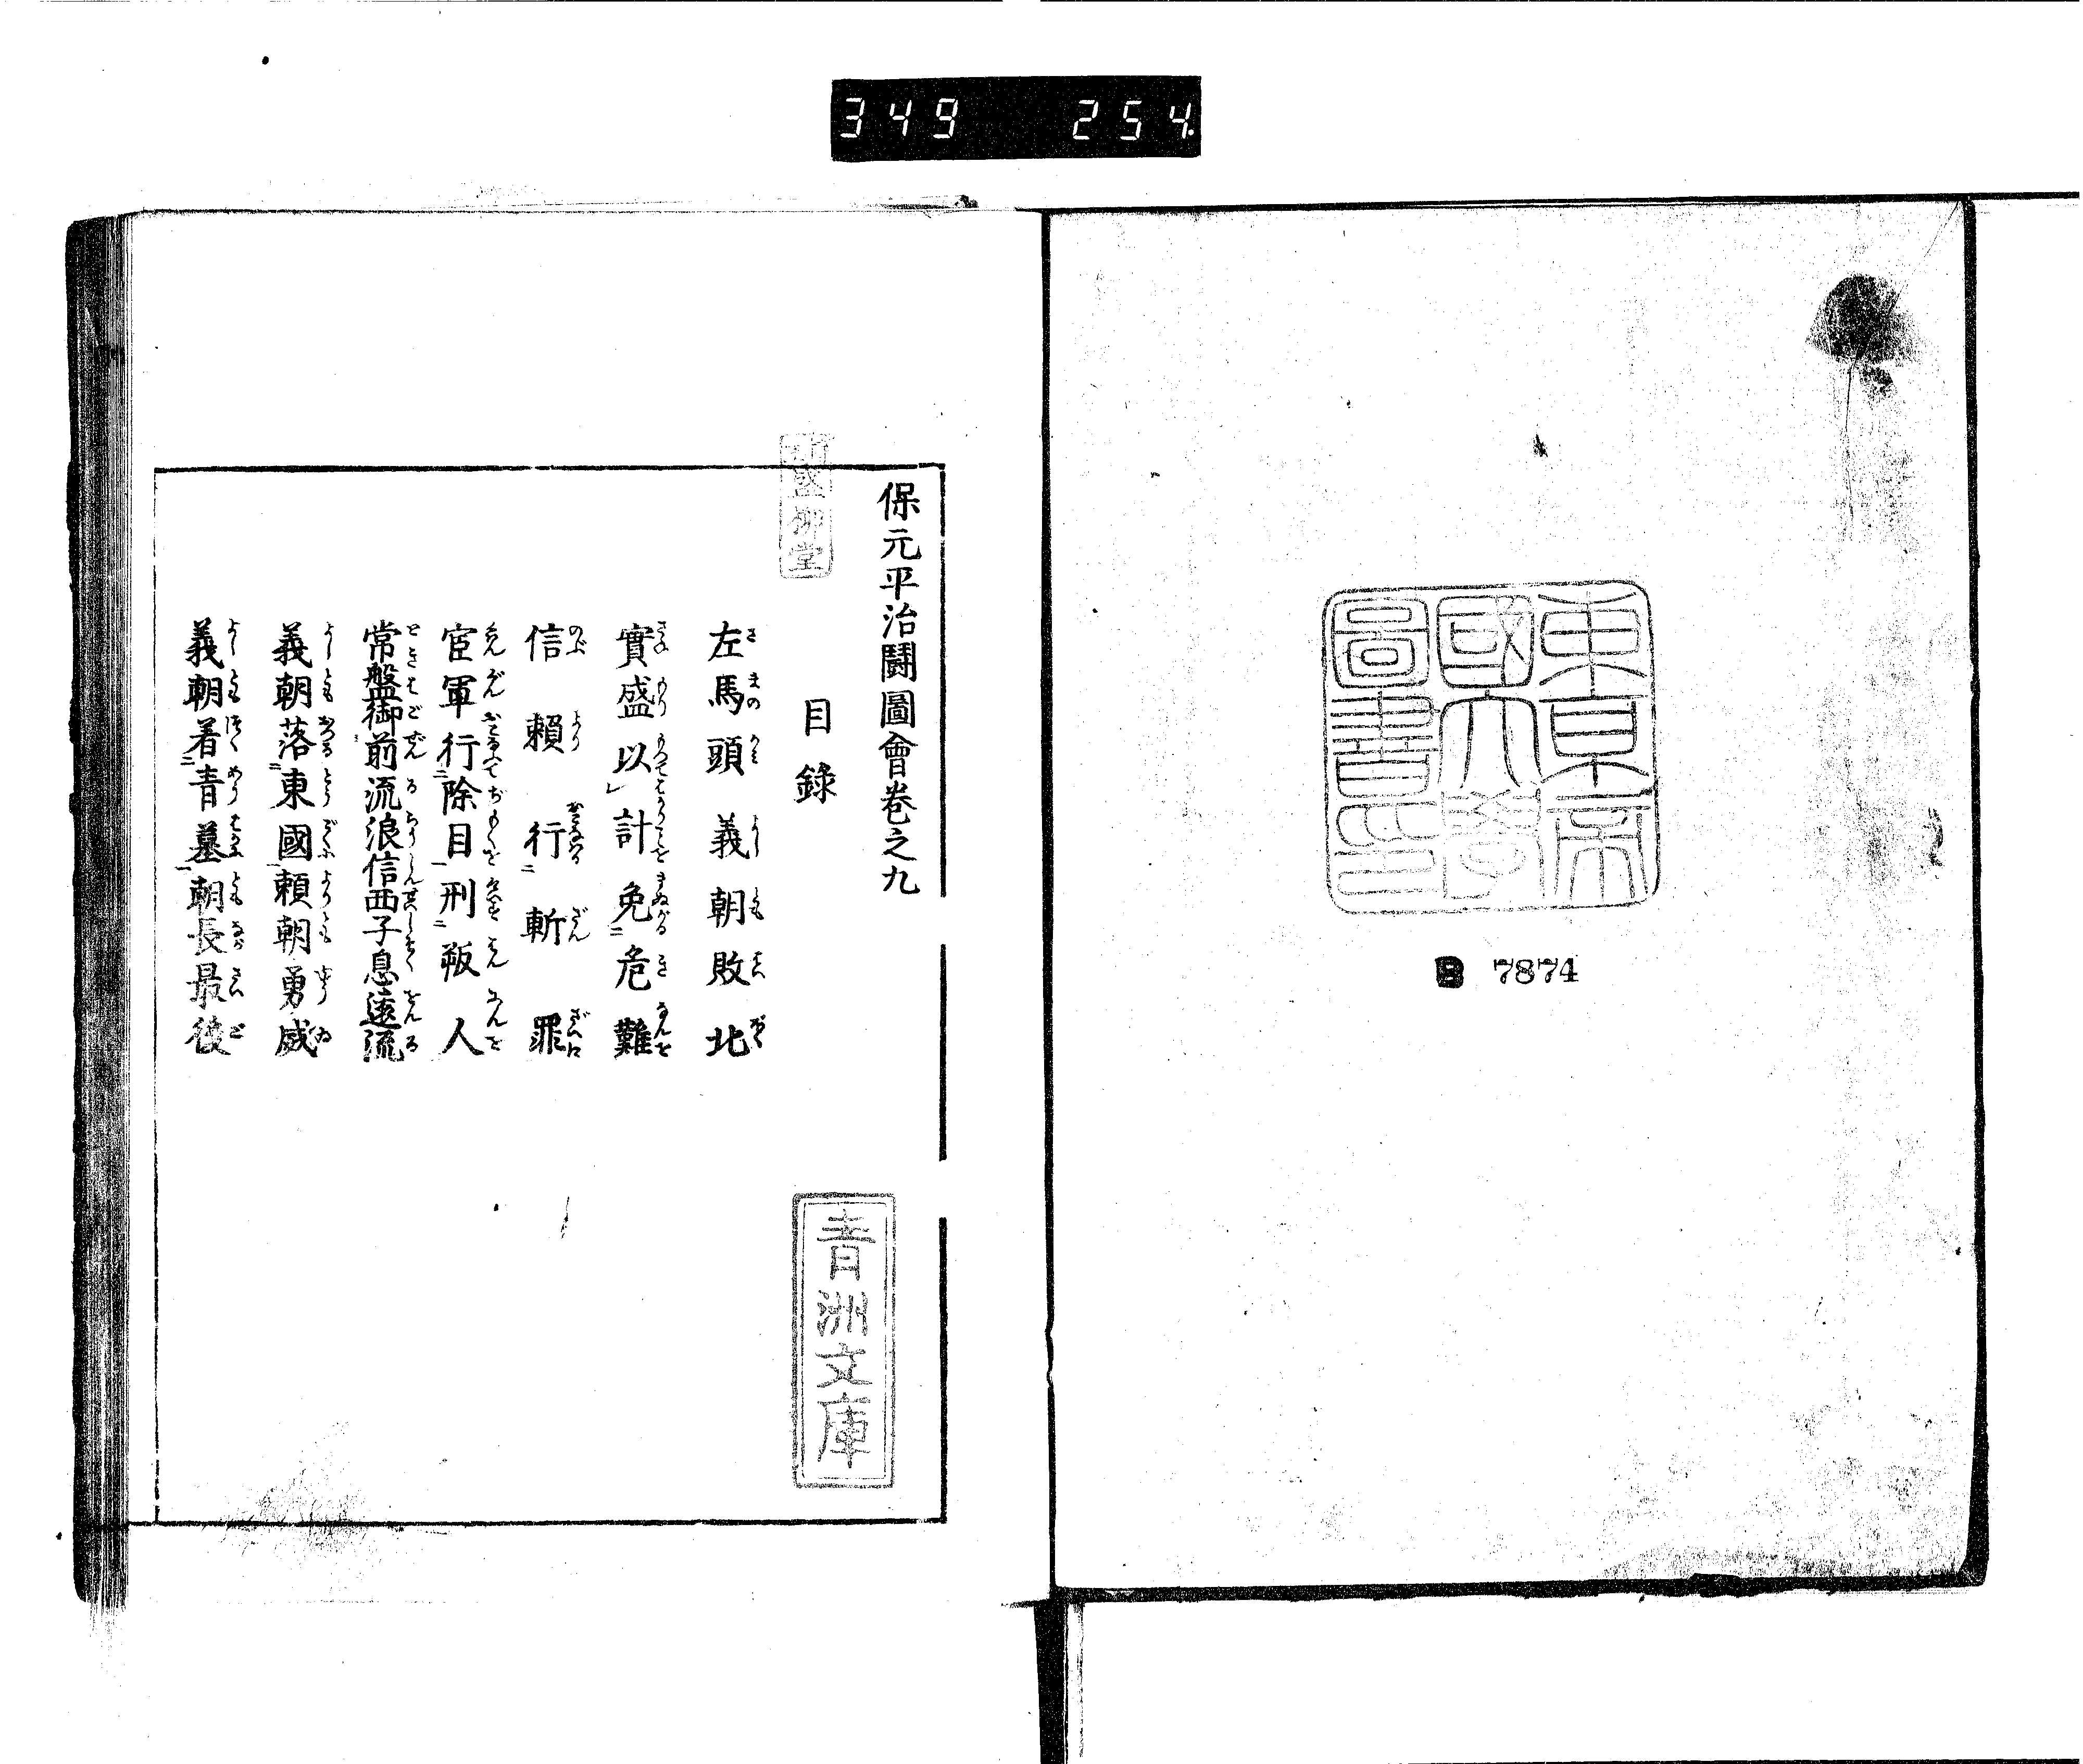 349 254
東京帝
國大學
圖書印
B 7874
保元平治鬪圖會巻之九
目録
左馬頭義朝敗北
實盛以計免危難
信頼行斬罪
官軍行除目刑叛人
常盤御前流浪信西子息遠流
義朝落東國頼朝勇威
義朝着青墓朝長最後
青洲文庫